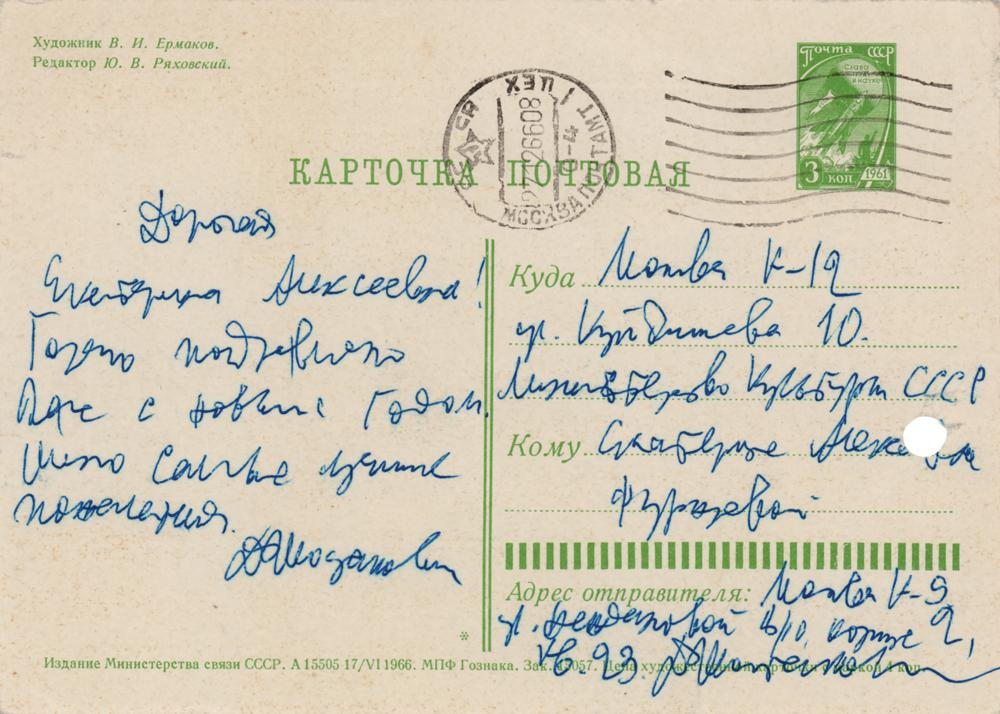 Художник В. И. Ермаков.
Редактор Ю. В. Ряховский.
Почта СССР
Слава
науке
3 коп
1961
МОСКВА ПОЧТАМТ 1 ЦЕХ
КАРТОЧКА ПОЧТОВАЯ
Дорогая
Екатерина Алексеевна!
Горячо поздравляю
Вас с новым годом.
Шлю самые лучшие
пожелания.
ДШостакович
Куда Москва К-12
ул. Куйбышева 10.
Министерство Культуры СССР
Кому Екатерине
Фурцевой
Адрес отправителя: Москва К-9
ул. Неждановой 8/10, корпус 2,
кв. 23. ДШостакович
*
Издание Министерства связи СССР. А 15505 17/VI 1966. МПФ Гознака. Зак. 45057. Цена художественной карточки с маркой 4 коп.